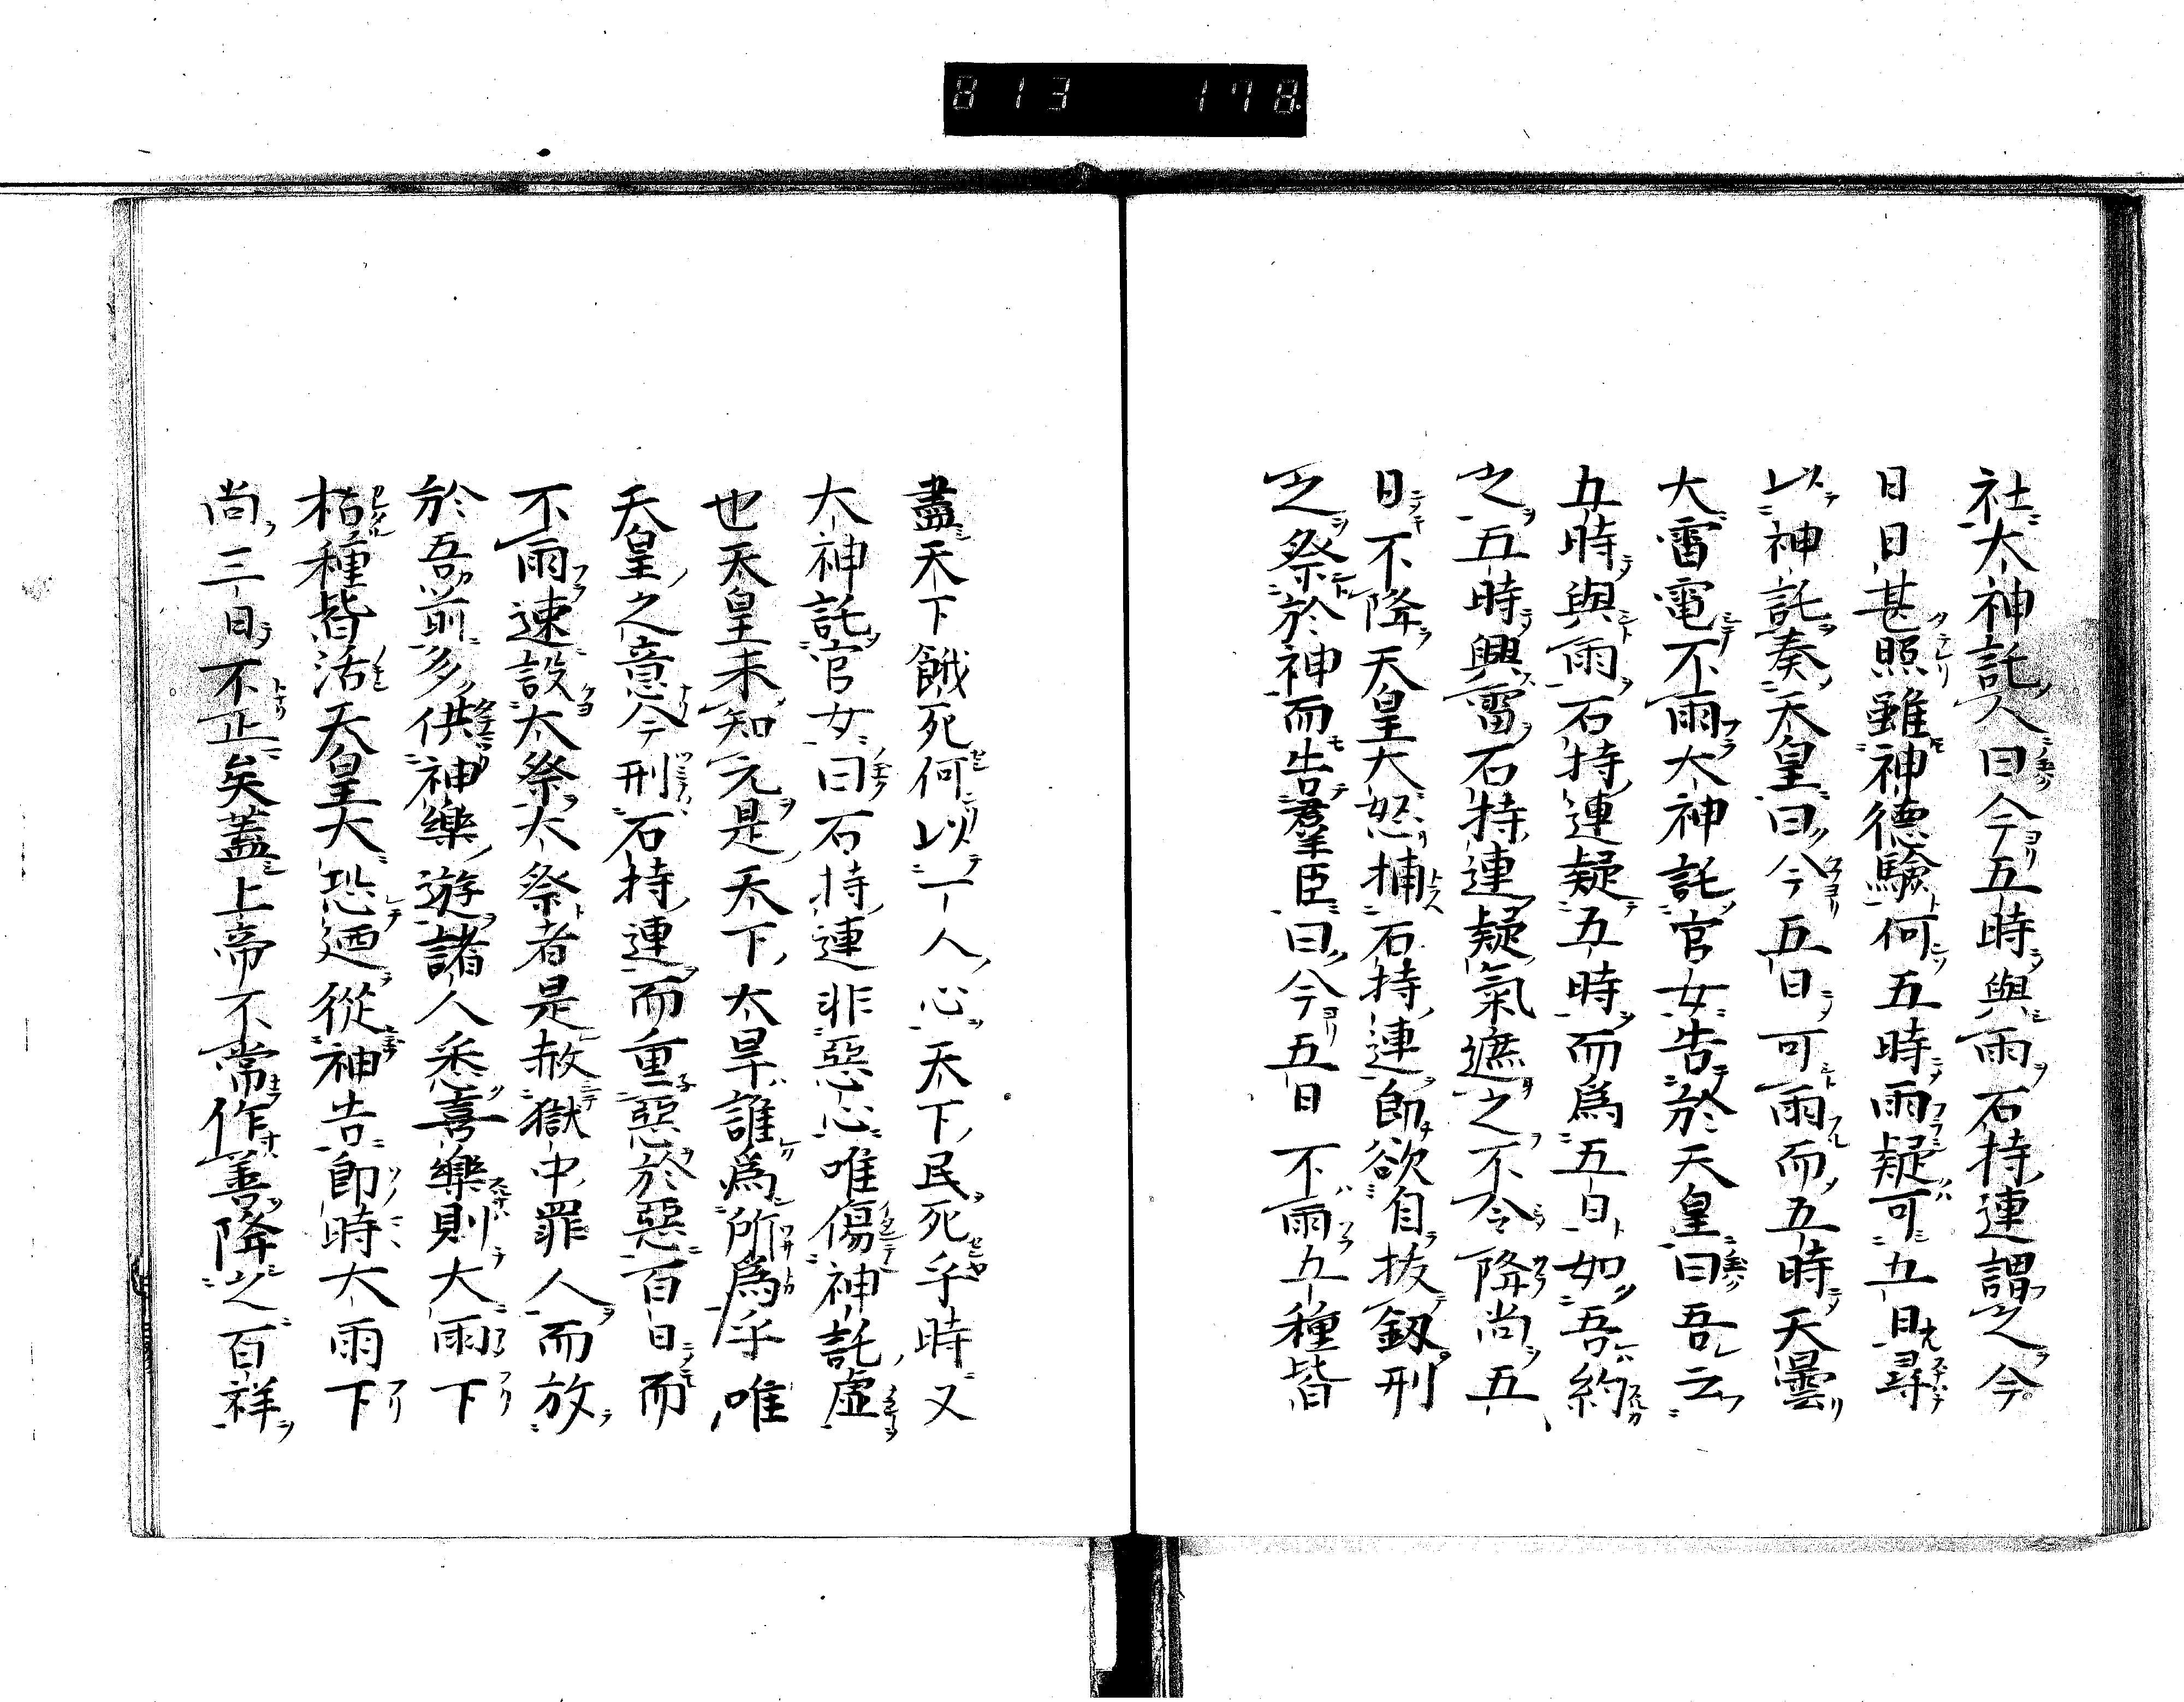 813 178
社大神託人曰今五時與雨石持連謂之今
日日甚照雖神德驗何五時雨疑可五日尋
以神託奏天皇曰今五日可雨而五時天曇
大雷電不雨大神託官女告於天皇曰吾云
五時與雨石持連疑五時而爲五日如吾約
之五時興雷石持連疑氣遮之不令降尚五
日不降天皇大怒捕石持連卽欲自拔釼刑
之祭於神而告羣臣曰今五日不雨五種皆
盡天下餓死何以一人心天下民死乎時又
大神託官女曰石持連非惡心唯傷神託虛
也天皇未知元是天下大旱誰爲所爲乎唯
天皇之意今刑石持連而重惡於惡百日而
不雨速設大祭大祭者是赦獄中罪人而放
於吾前多供神樂遊諸人悉喜樂則大雨下
枯種皆活天皇大恐迺從神告卽時大雨下
尚三日不止矣蓋上帝不常作善降之百祥